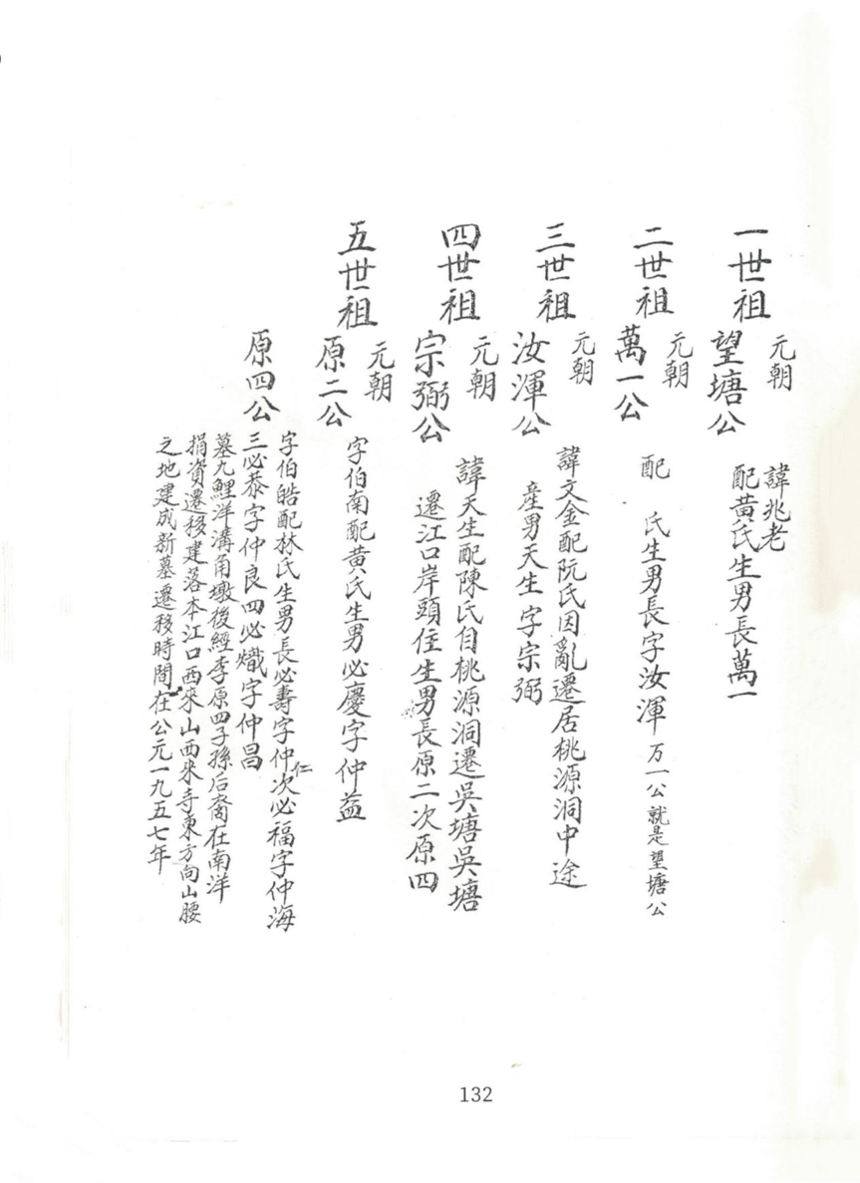 一世祖
元朝
望塘公
諱兆老
配黄氏生男長萬一
二世祖
元朝
萬一公
配 氏生男長字汝渾 万一公就是望塘公
三世祖
元朝
汝渾公
諱文金配阮氏因亂遷居桃源洞中途
産男天生字宗弼
四世祖
元朝
宗弼公
諱天生配陳氏自桃源洞遷吳塘吳塘
遷江口岸頭住生男長原二次原四
五世祖
元朝
原二公
字伯南配黄氏生男必慶字仲益
原四公
字伯皓配林氏生男長必壽字仲仁次必福字仲海
三必恭字仲良四必熾字仲昌
墓九鯉洋溝角墩後經李原四子孫后裔在南洋
捐資遷移建落本江口西來山西來寺東方向山腰
之地建成新墓遷移時間在公元一九五七年
132